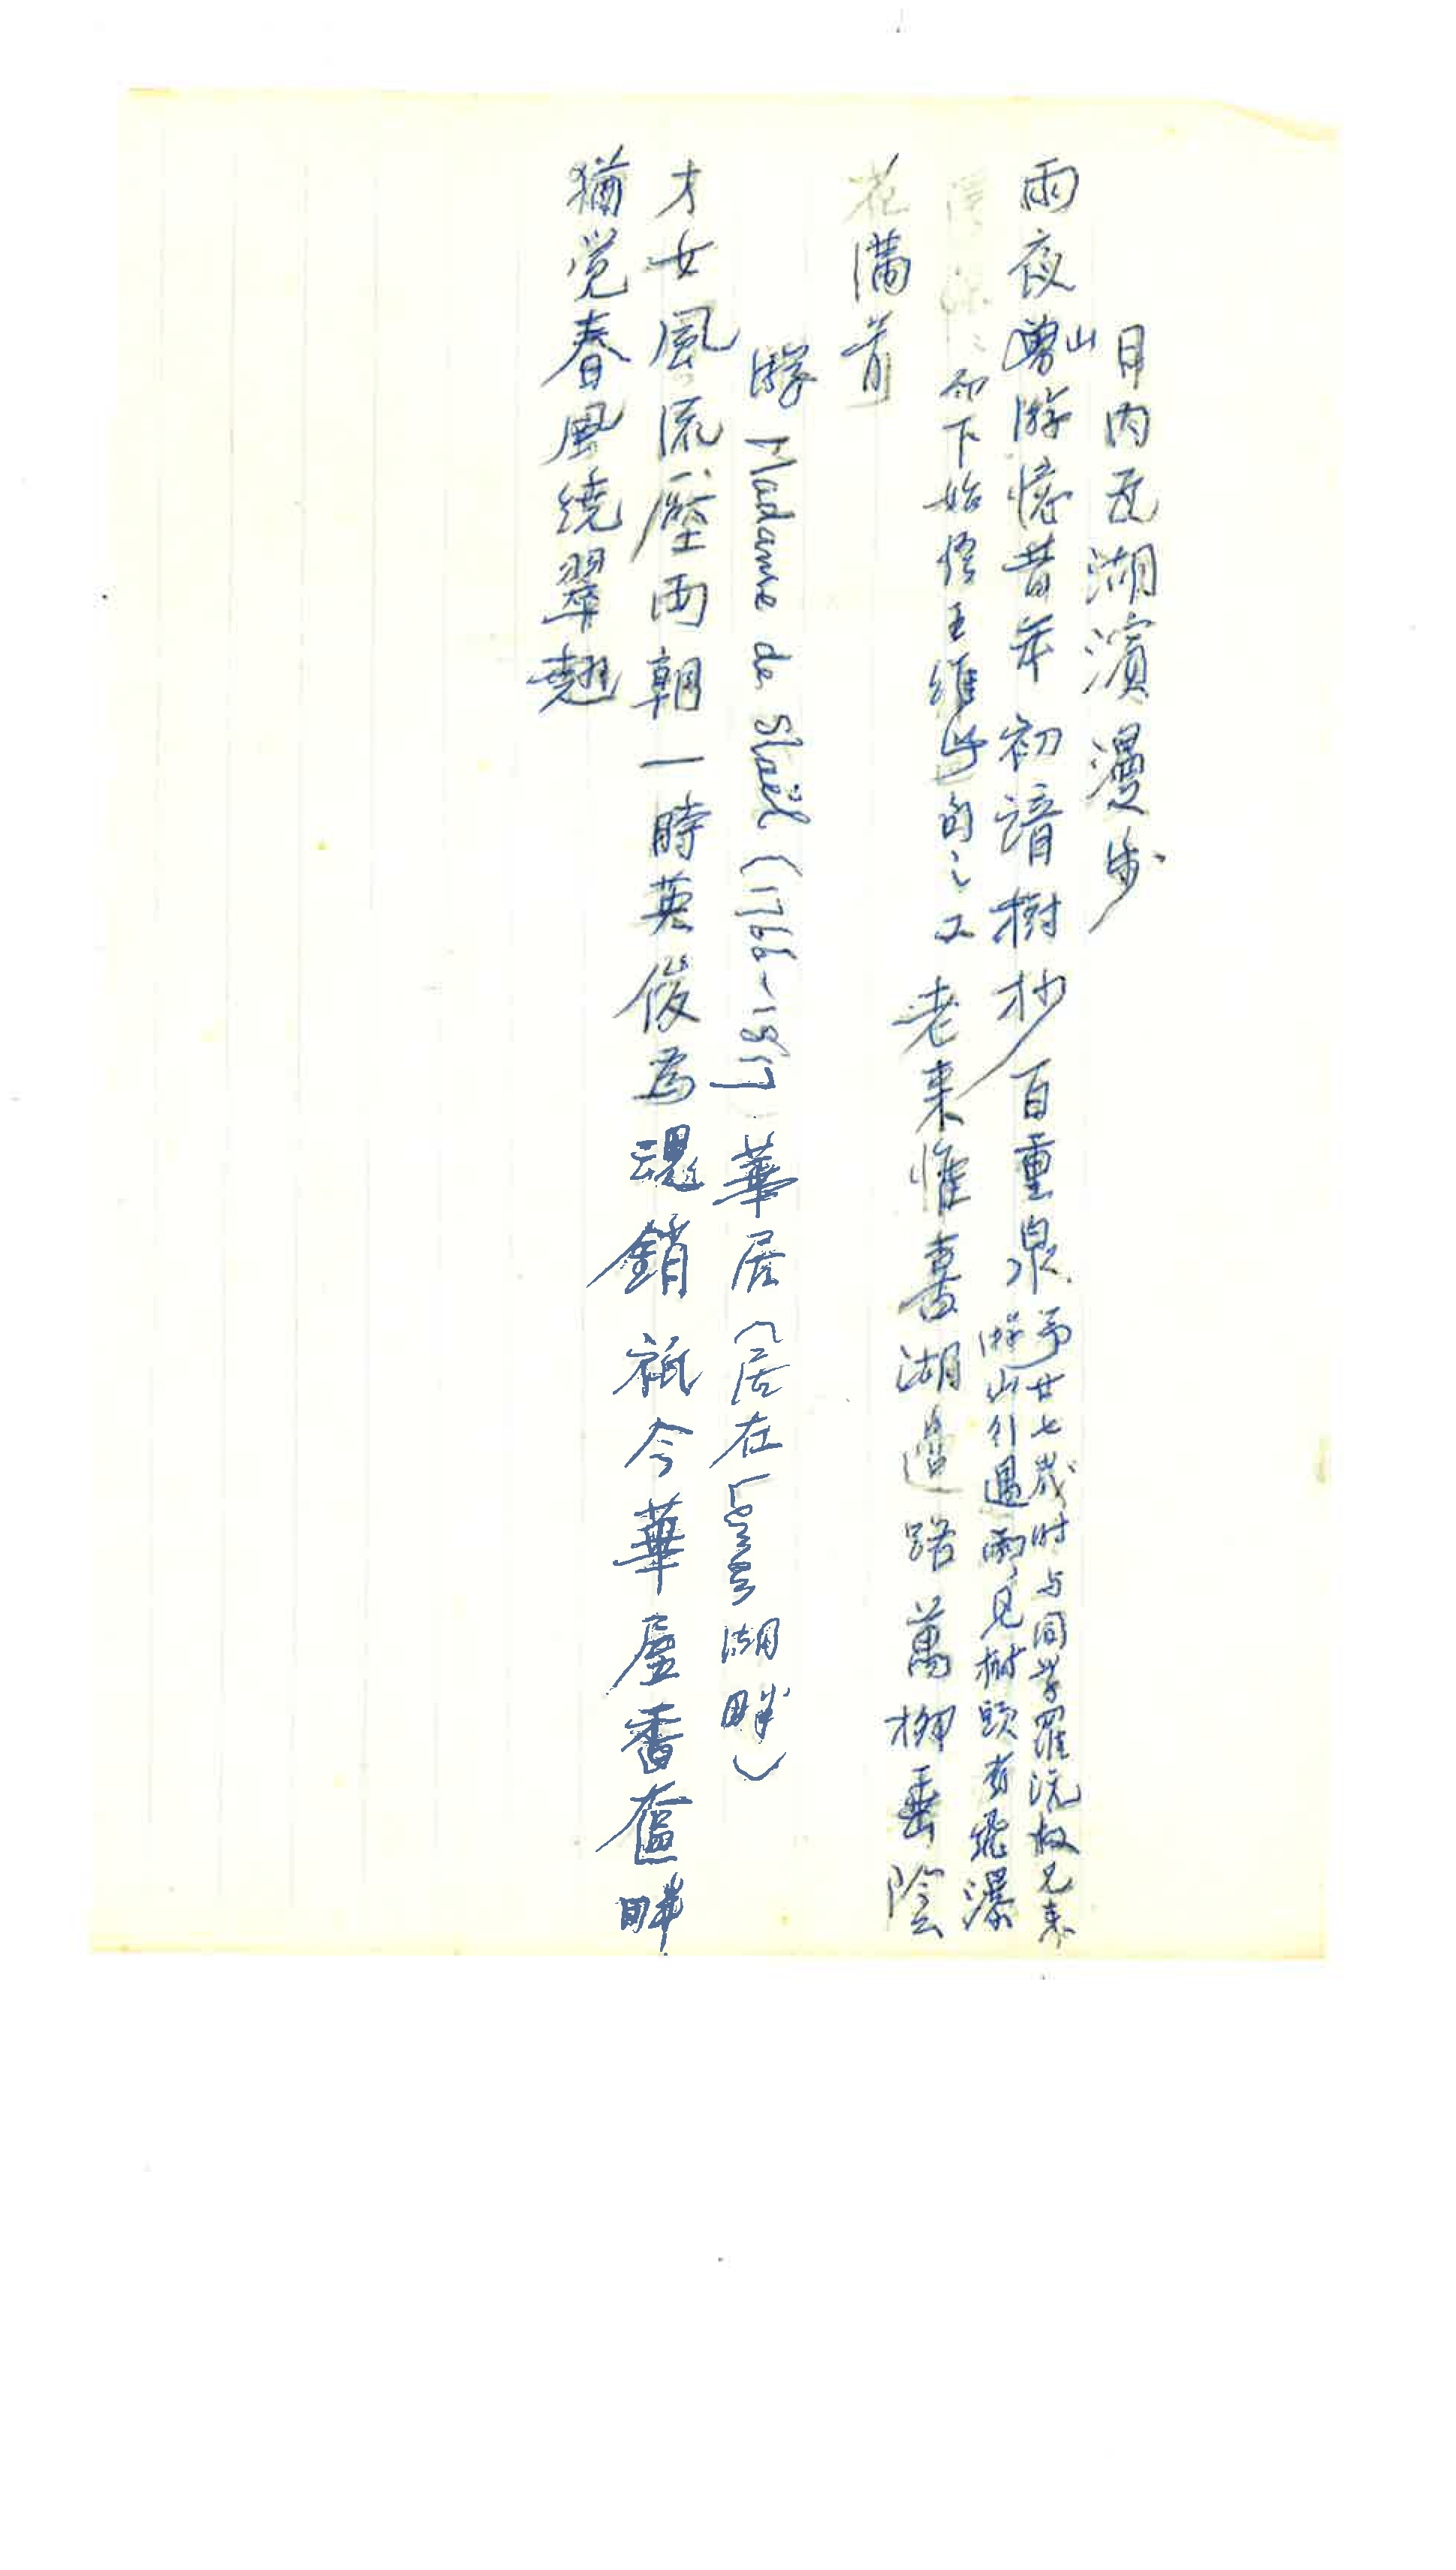 日内瓦湖濱漫步
雨夜山游憶昔年初諳樹杪百重泉予廿七歲时与同学羅沅叔兄来
游山行遇雨见樹頭有飛瀑
而下始悟王維此句之工老来惟喜湖邊路萬柳垂陰
花滿前
游 Madame de Staël (1766-1817) 華居（居在Léman湖畔）
才女風流壓兩朝一時英俊為魂銷祇今華屋香奩畔
猶覚春風繞翠翹